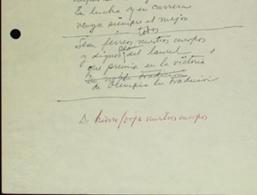 La lucha y su carrera
venza siempre el mejor
todos
Sean férreos nuestros cuerpos
y dignos del laurel
que premia en la victoria
de Olimpia la tradición
hierro/forja nuestros cuerpos